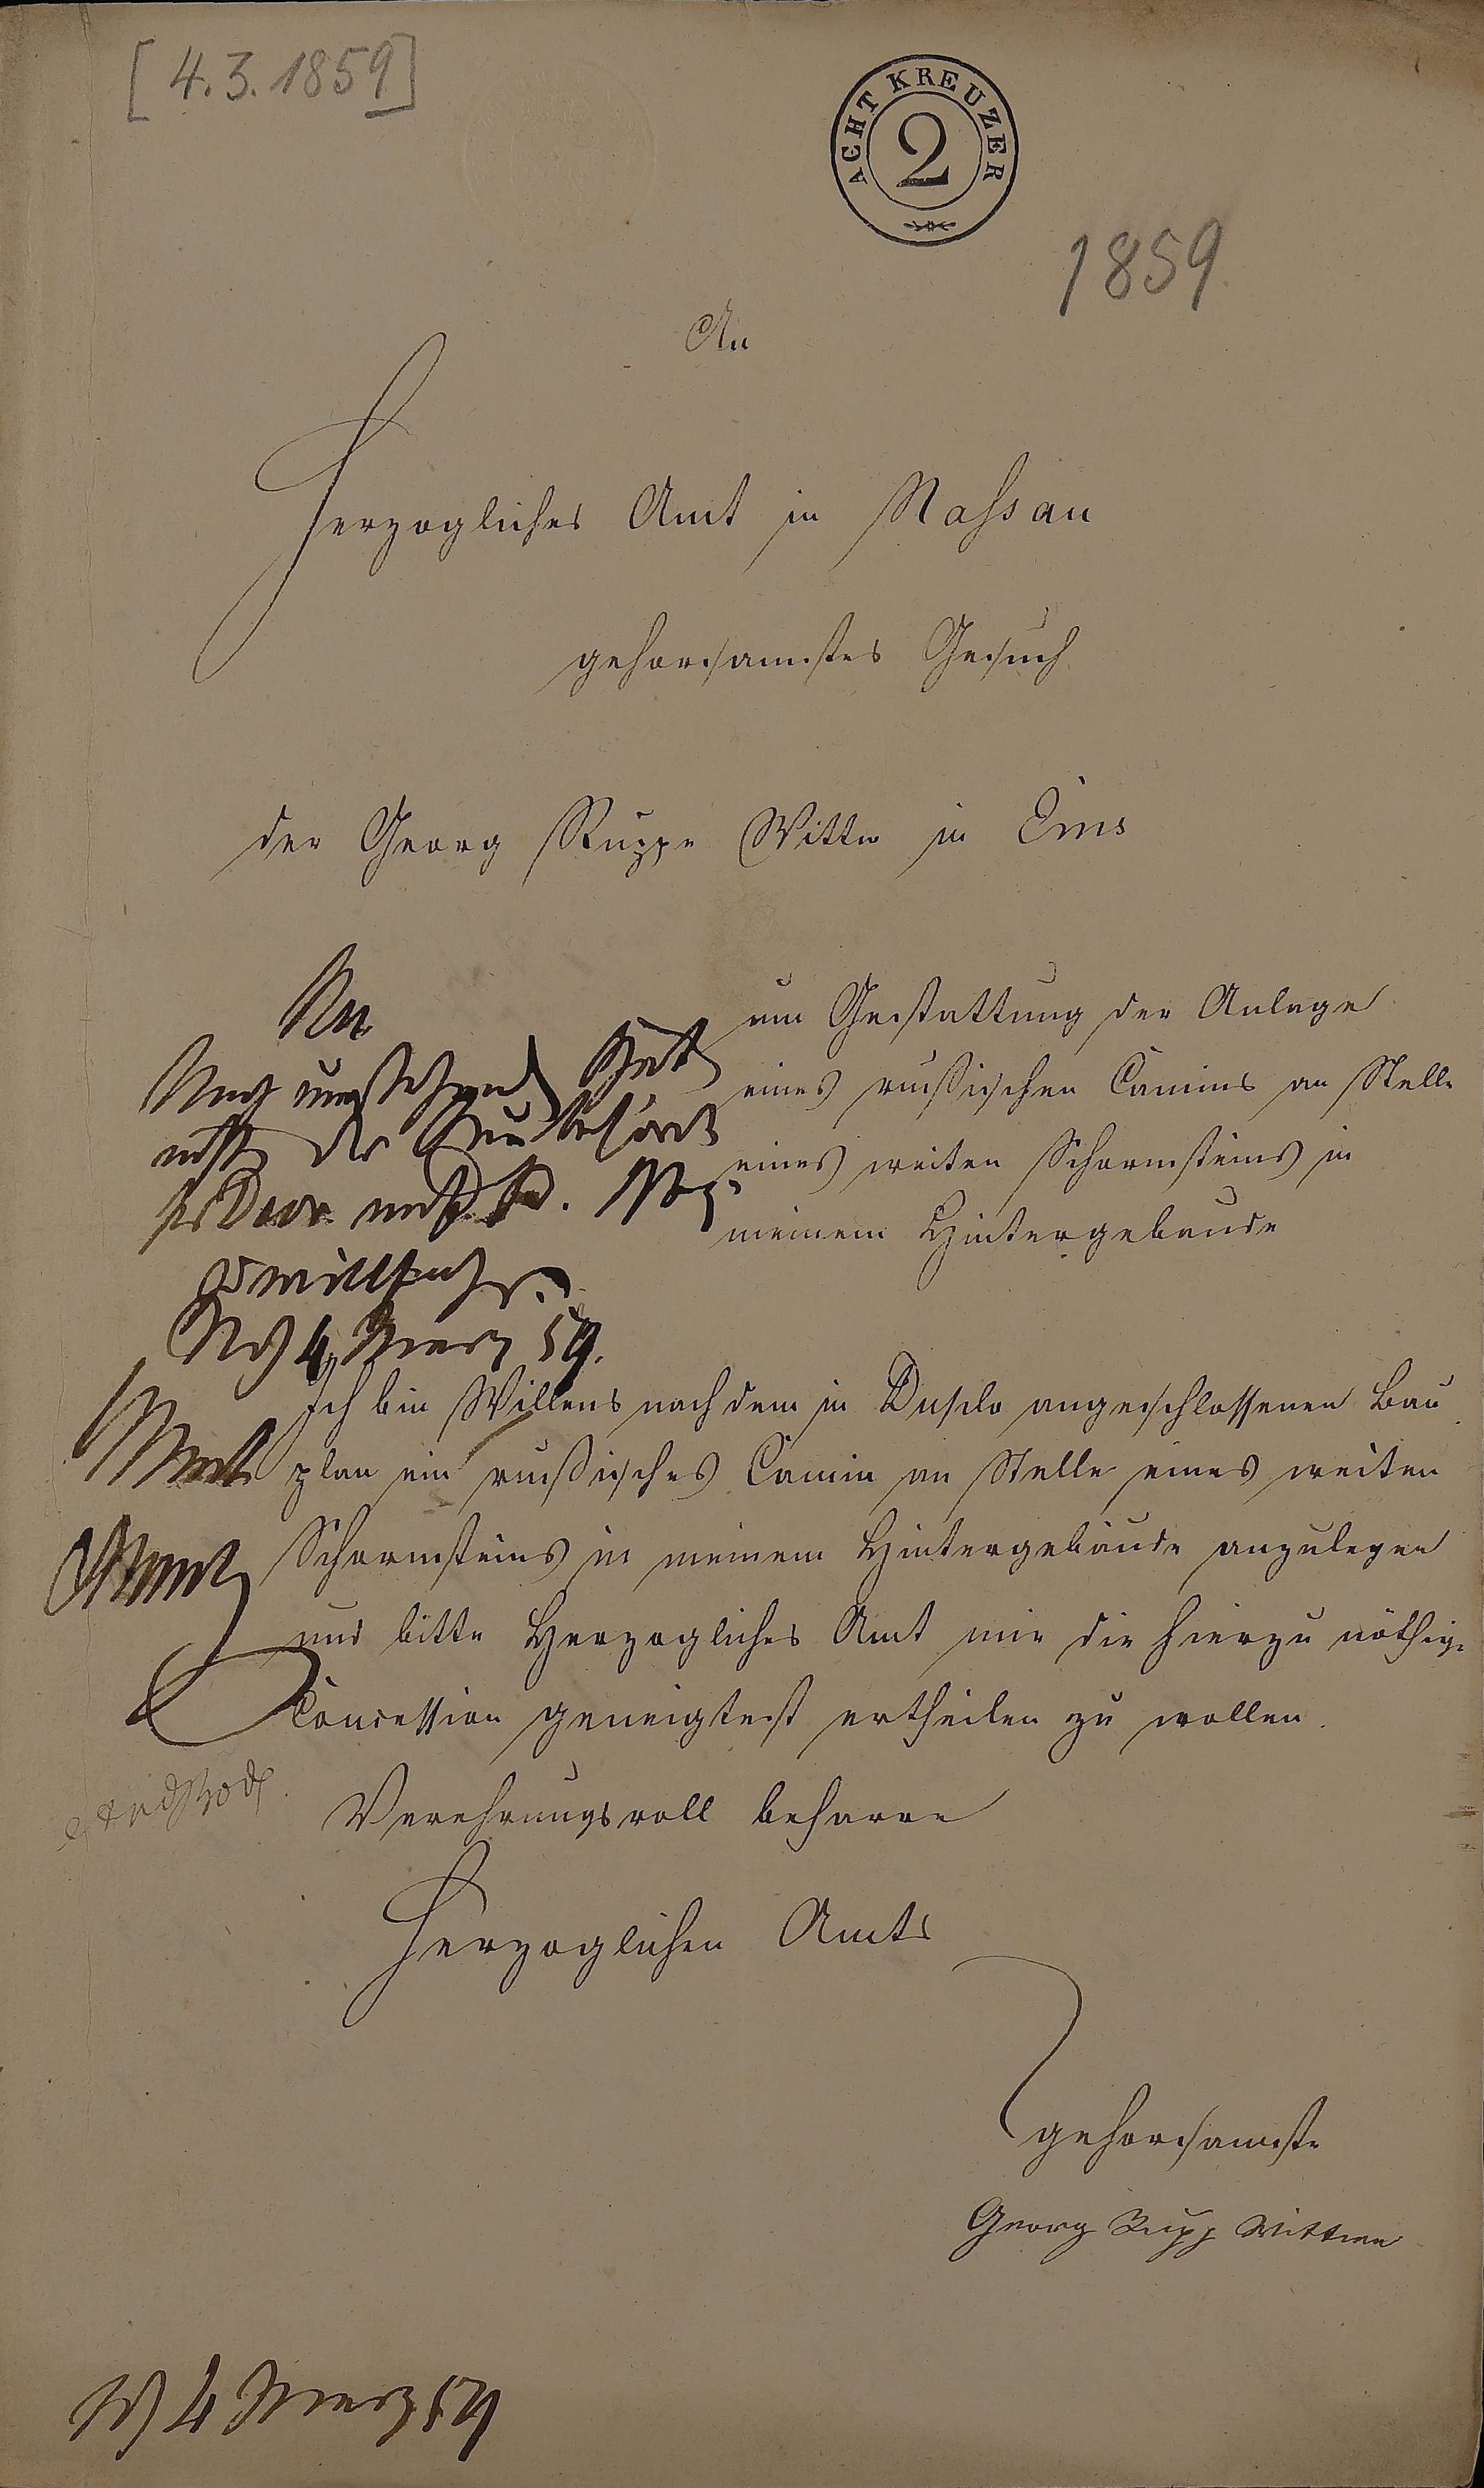 [4.3.1859]
ACHT KREUZER
2
1859
An
Herzogliches Amt in Nassau
gehorsamstes Gesuch
der Georg Ruppe Wittw in Ems
um Gestattung der Anlage
eines russischen Camins an Stelle
eines weiten Schornsteins in
meinem Hintergebäude
4 März 59.
Ich bin Willens nach dem in Duplo angeschlossenen Bau
plan ein russisches Camin an Stelle eines weiten
Schornsteins in meinem Hintergebäude anzulegen
und bitte Herzogliches Amt mir die hierzu nöthige
Concession geneigtest ertheilen zu wollen.
Verehrungsvoll beharre
Herzoglichen Amts
gehorsamste
Georg Rupp Wittwe
4 März 59